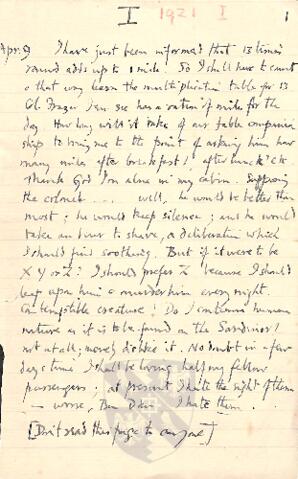 I 1921 I 1
Apr. 9 I have just been informed that 13 times
round adds up to 1 mile. So I shall have to count
& that way learn the multiplication table for 13
Col. Frazer I see has a ration of mile for the
day. How long will it take of our table companion
ship to bring me to the point of asking him how
many miles after breakfast? after lunch? &c
Thank God I'm alone in my cabin. Supposing
the colonel . . . well, he would be better than
most; he would keep silence; and he would
take an hour to shave, a deliberation which
I should find soothing. But if it were to be
X Y or Z? I should prefer Z because I should
leap upon him & murder him every night.
Contemptible creature! Do I condemn human
nature as it is to be found on the Sardinia?
not at all; merely dislike it. No doubt in a few
days time I shall be loving half my fellow
passengers; at present I hate the sight of them
— worse, I hate them.
[Don't read this page to anyone]